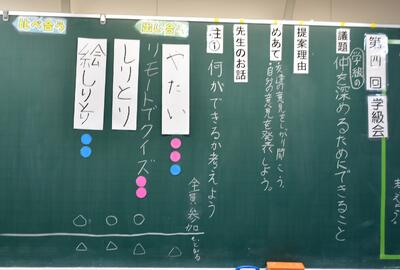 第四回 学級会
議題 学級の仲を深めるためにできること
提案理由
めあて ・友達の意見をしっかり聞こう。
・自分の意見を発表しよう。
先生のお話
注① 何ができるか考えよう
全員参加
出し合う
やたい
リモートでクイズ
しりとり
絵しりとり
比べ合う